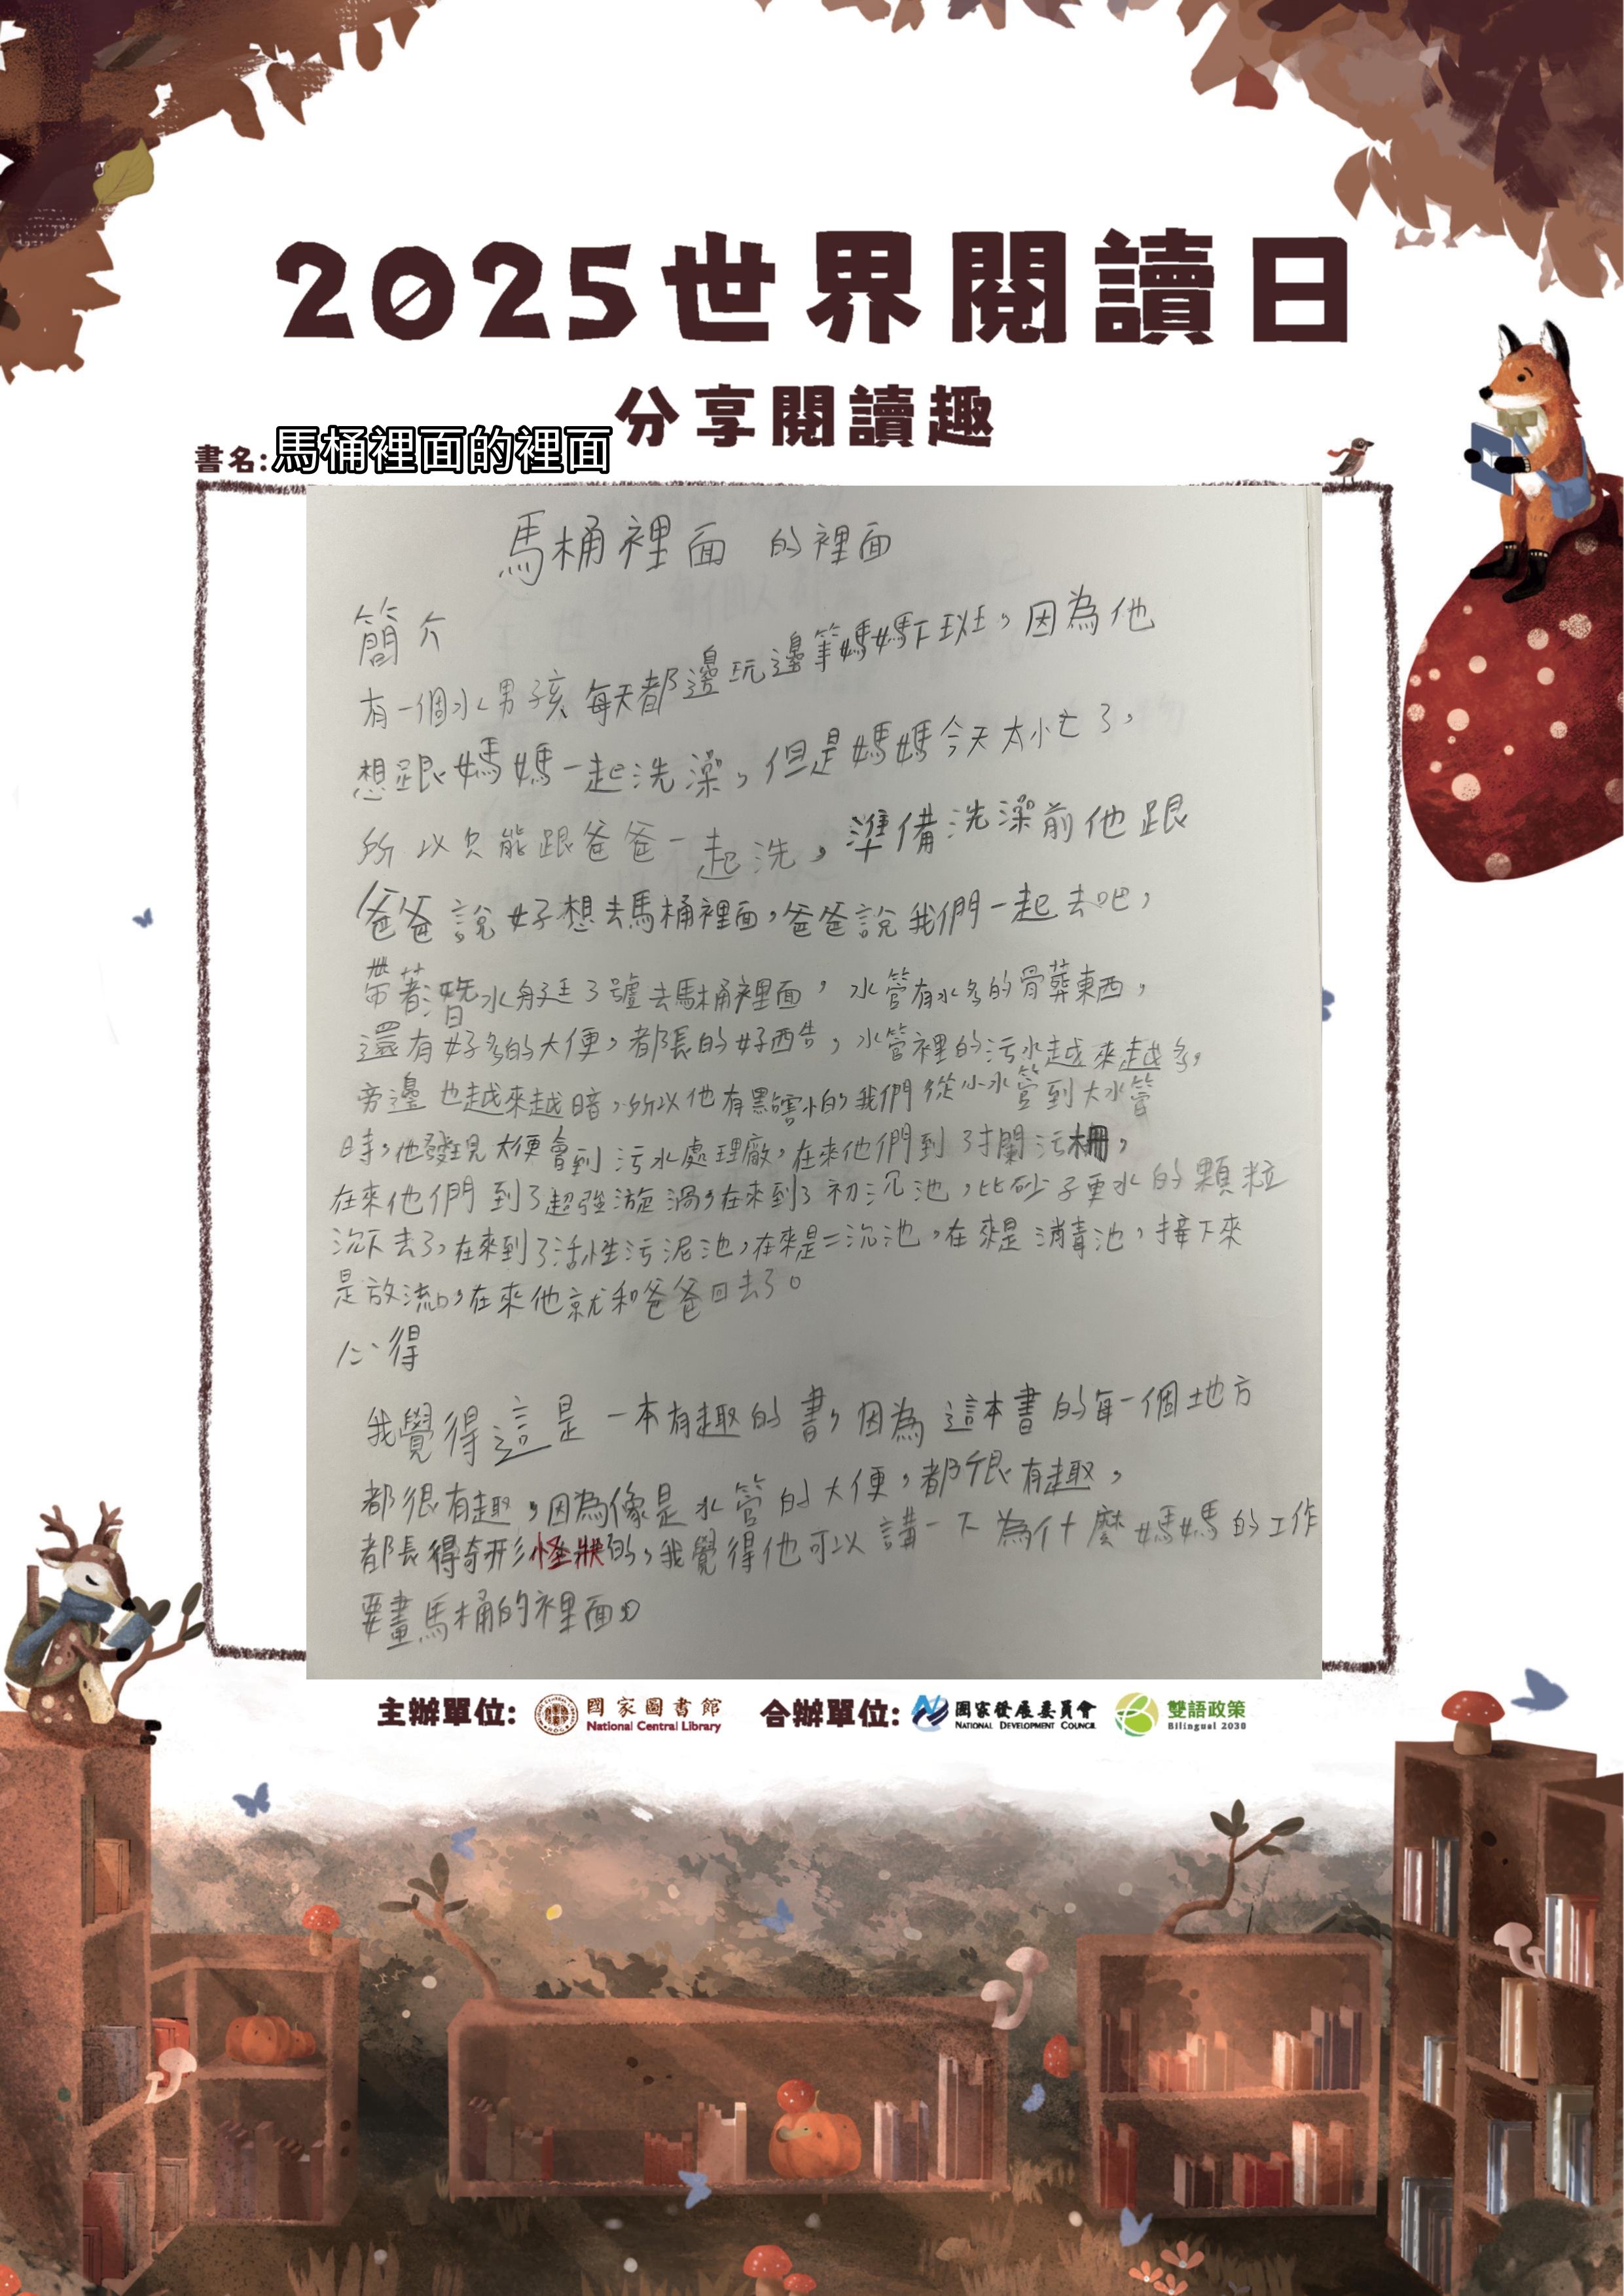 2025世界閱讀日
分享閱讀趣
書名:馬桶裡面的裡面
馬桶裡面 的裡面
簡介
有一個小男孩每天都邊玩邊等媽媽下班，因為他
想跟媽媽一起洗澡，但是媽媽今天太忙了，
所以只能跟爸爸一起洗，準備洗澡前他跟
爸爸說好想去馬桶裡面，爸爸說我們一起去吧，
帶著潛水艇3號去馬桶裡面，水管有很多的骨葬東西，
還有好多的大便，都長的好酷，水管裡的污水越來越多，
旁邊也越來越暗，所以他有點害怕，我們從小水管到大水管
時，他發現大便會到污水處理廠，在來他們到了攔污柵，
在來他們到了超強漩渦，在來到了初沉池，比砂子更小的顆粒
沉下去了，在來到了活性污泥池，在來是二沉池，在來是消毒池，接下來
是放流口，在來他就和爸爸回去了。
心得
我覺得這是一本有趣的書，因為這本書的每一個地方
都很有趣，因為像是水管的大便，都很有趣，
都長得奇形怪狀的，我覺得他可以講一下為什麼媽媽的工作
要畫馬桶的裡面。
主辦單位: 國家圖書館 National Central Library 合辦單位: 國家發展委員會 NATIONAL DEVELOPMENT COUNCIL 雙語政策 Bilingual 2030